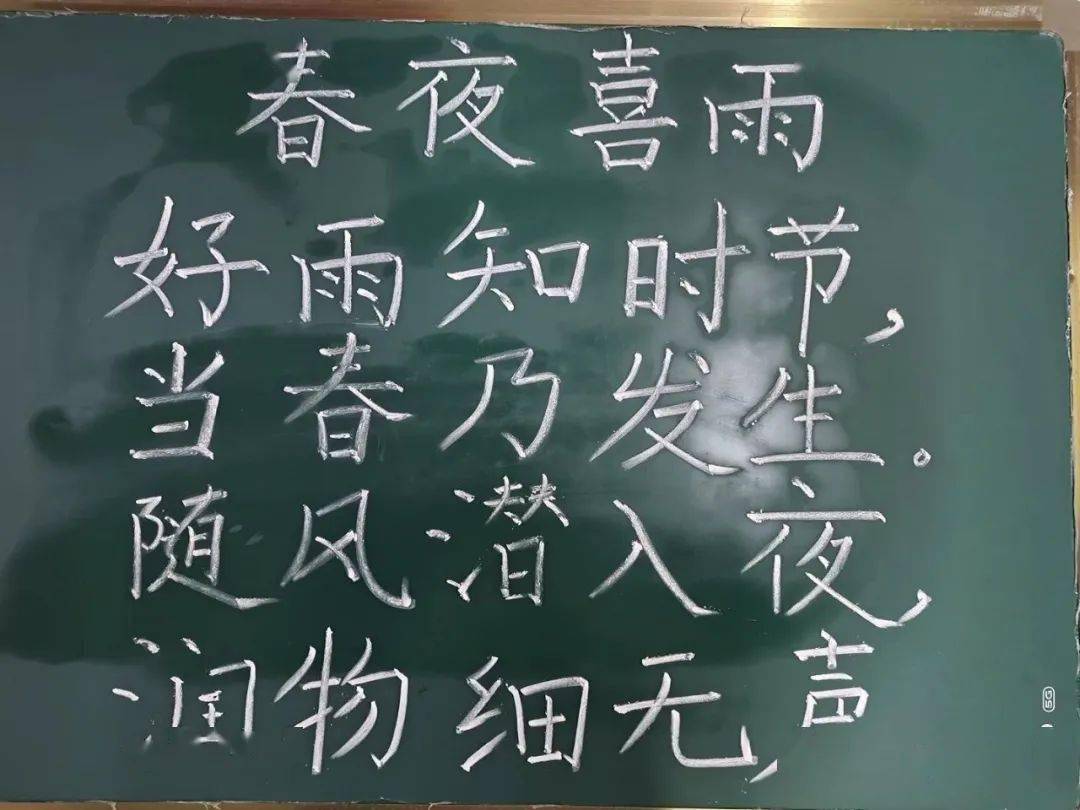 春夜喜雨
好雨知时节，
当春乃发生。
随风潜入夜，
润物细无声
5G